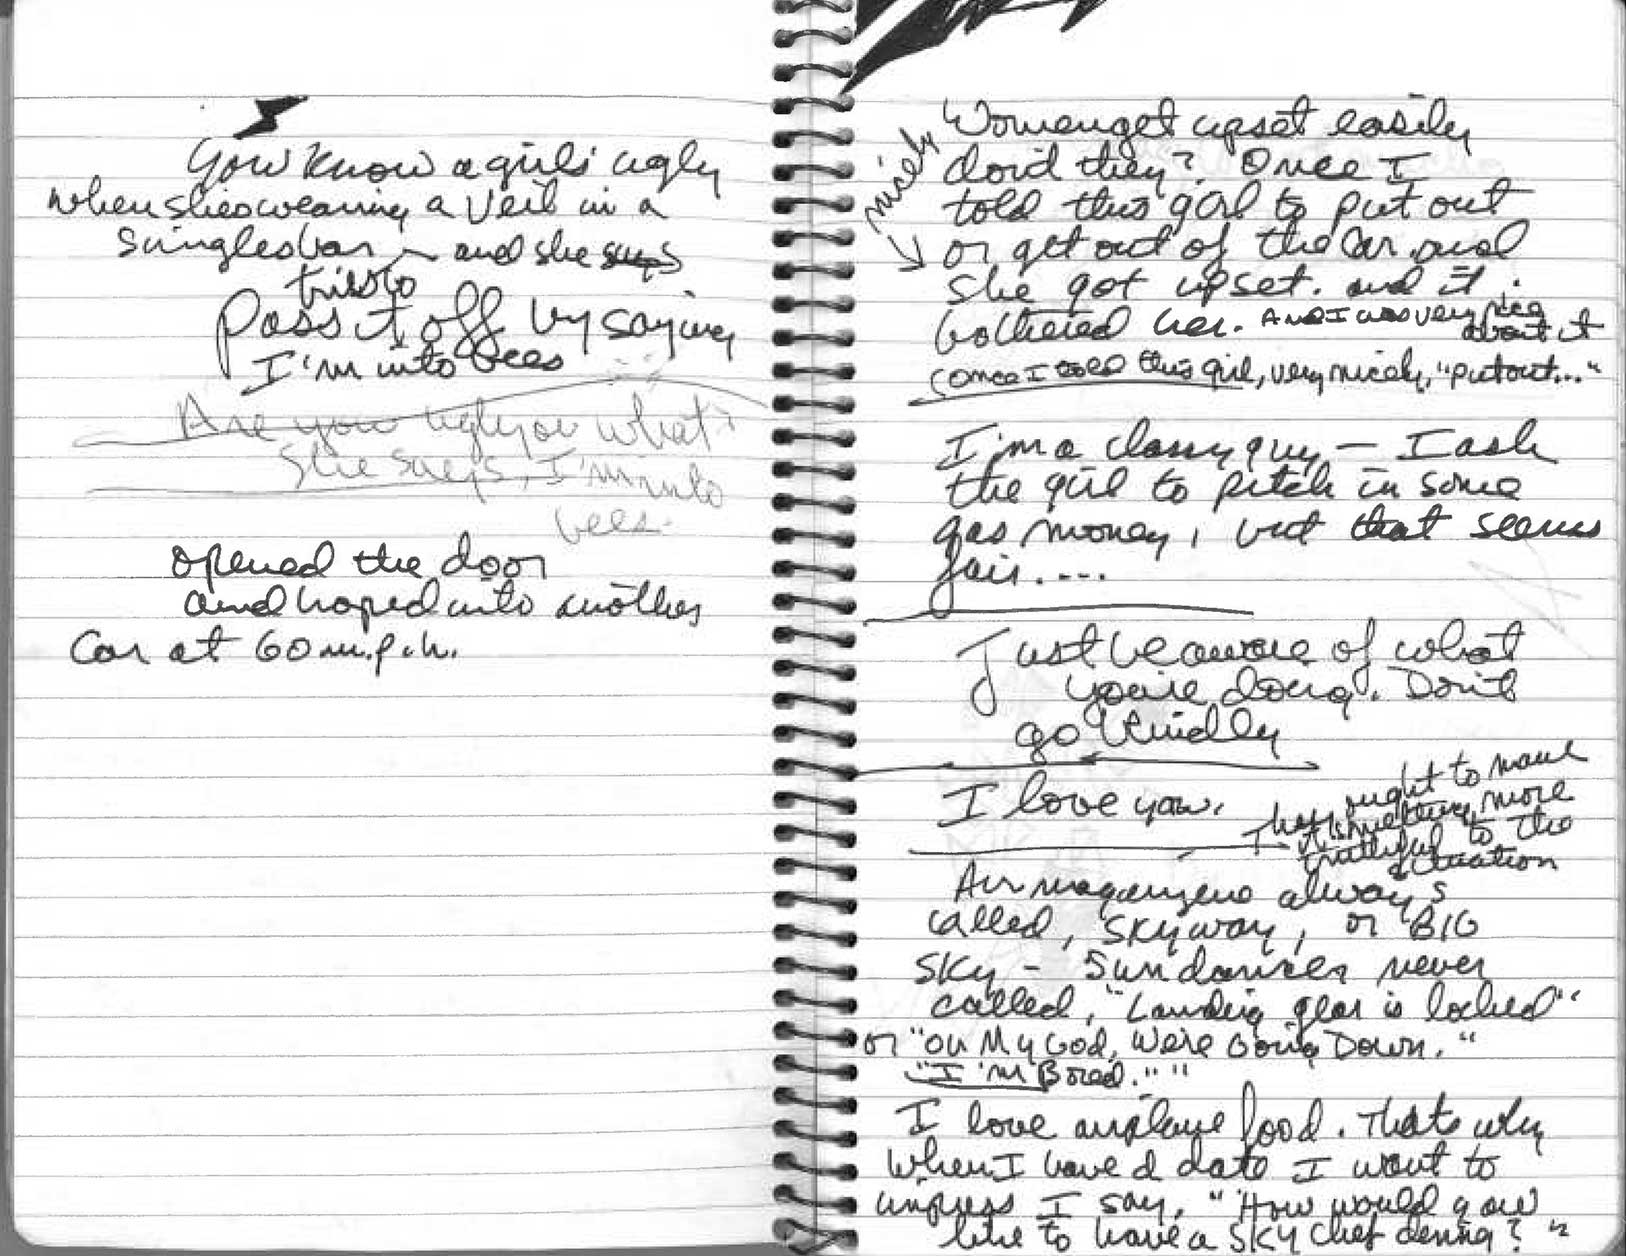 You know a girls ugly
when shes wearing a veil in a
singles bar - and she says
tries to
Pass it off by saying
I'm into bees
Are you ugly or what?
She says, I'm into
bees.
opened the door
and hoped into another
Car at 60 m.p.h.
Women get upset easily
don't they? Once I
nicely
told this girl to put out
or get out of the car and
she got upset. and it
bothered her. And I was very nice
about it
(Once I told this girl, very nicely, "put out..."
I'm a classy guy - I ask
the girl to pitch in some
gas money, but that seems
fair....
Just be aware of what
you're doing. Don't
go blindly
I love you.
They ought to name
it something more
truthful to the
situation
Air magazines always
called, Skyway, or BIG
SKY - Sundancer, never
called, "Landing gear is locked"
or "Oh My God, We're Going Down."
"I'm Bored.""
I love airplane food. Thats why
when I have a date I want to
impress I say, "How would you
like to have a SKY Chef dening?"